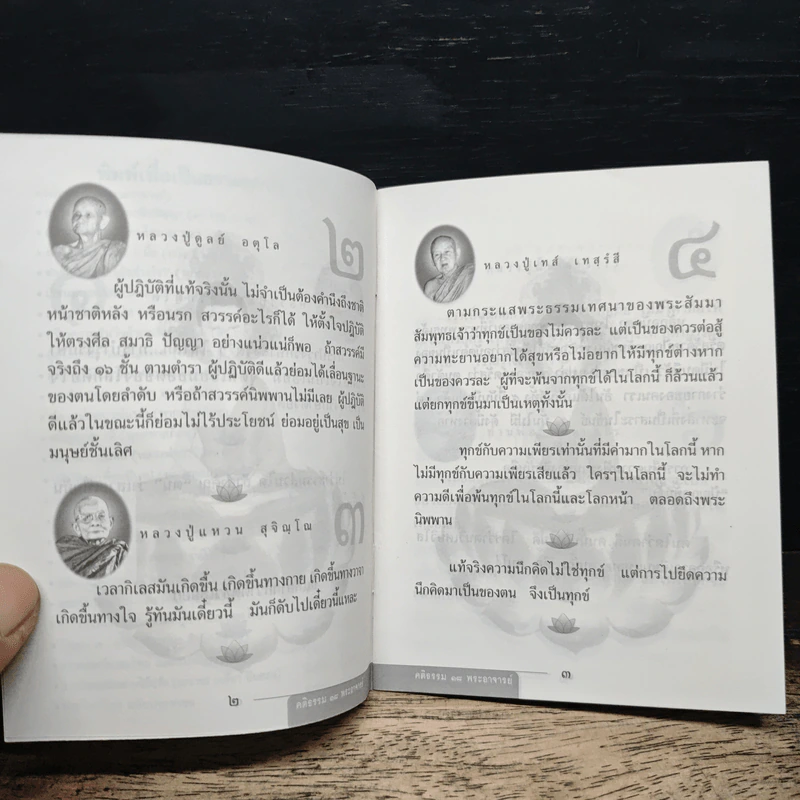 หลวงปู่ดูลย์ อตุโล
๒
ผู้ปฏิบัติที่แท้จริงนั้น ไม่จำเป็นต้องคำนึงถึงชาติ
หน้าชาติหลัง หรือนรก สวรรค์อะไรก็ได้ ให้ตั้งใจปฏิบัติ
ให้ตรงศีล สมาธิ ปัญญา อย่างแน่วแน่ก็พอ ถ้าสวรรค์มี
จริงถึง ๑๖ ชั้น ตามตำรา ผู้ปฏิบัติดีแล้วย่อมได้เลื่อนฐานะ
ของตนโดยลำดับ หรือถ้าสวรรค์นิพพานไม่มีเลย ผู้ปฏิบัติ
ดีแล้วในขณะนี้ก็ย่อมไม่ไร้ประโยชน์ ย่อมอยู่เป็นสุข เป็น
มนุษย์ชั้นเลิศ
หลวงปู่แหวน สุจิณฺโณ
๓
เวลากิเลสมันเกิดขึ้น เกิดขึ้นทางกาย เกิดขึ้นทางวาจา
เกิดขึ้นทางใจ รู้ทันมันเดี๋ยวนี้ มันก็ดับไปเดี๋ยวนี้แหละ
๒
คติธรรม ๑๘ พระอาจารย์
หลวงปู่เทส์ เทสฺรํสี
๔
ตามกระแสพระธรรมเทศนาของพระสัมมา
สัมพุทธเจ้าว่าทุกข์เป็นของไม่ควรละ แต่เป็นของควรต่อสู้
ความทะยานอยากได้สุขหรือไม่อยากให้มีทุกข์ต่างหาก
เป็นของควรละ ผู้ที่จะพ้นจากทุกข์ได้ในโลกนี้ ก็ล้วนแล้ว
แต่ยกทุกข์ขึ้นมาเป็นเหตุทั้งนั้น
ทุกข์กับความเพียรเท่านั้นที่มีค่ามากในโลกนี้ หาก
ไม่มีทุกข์กับความเพียรเสียแล้ว ใครๆในโลกนี้ จะไม่ทำ
ความดีเพื่อพ้นทุกข์ในโลกนี้และโลกหน้า ตลอดถึงพระ
นิพพาน
แท้จริงความนึกคิดไม่ใช่ทุกข์ แต่การไปยึดความ
นึกคิดมาเป็นของตน จึงเป็นทุกข์
คติธรรม ๑๘ พระอาจารย์
๓